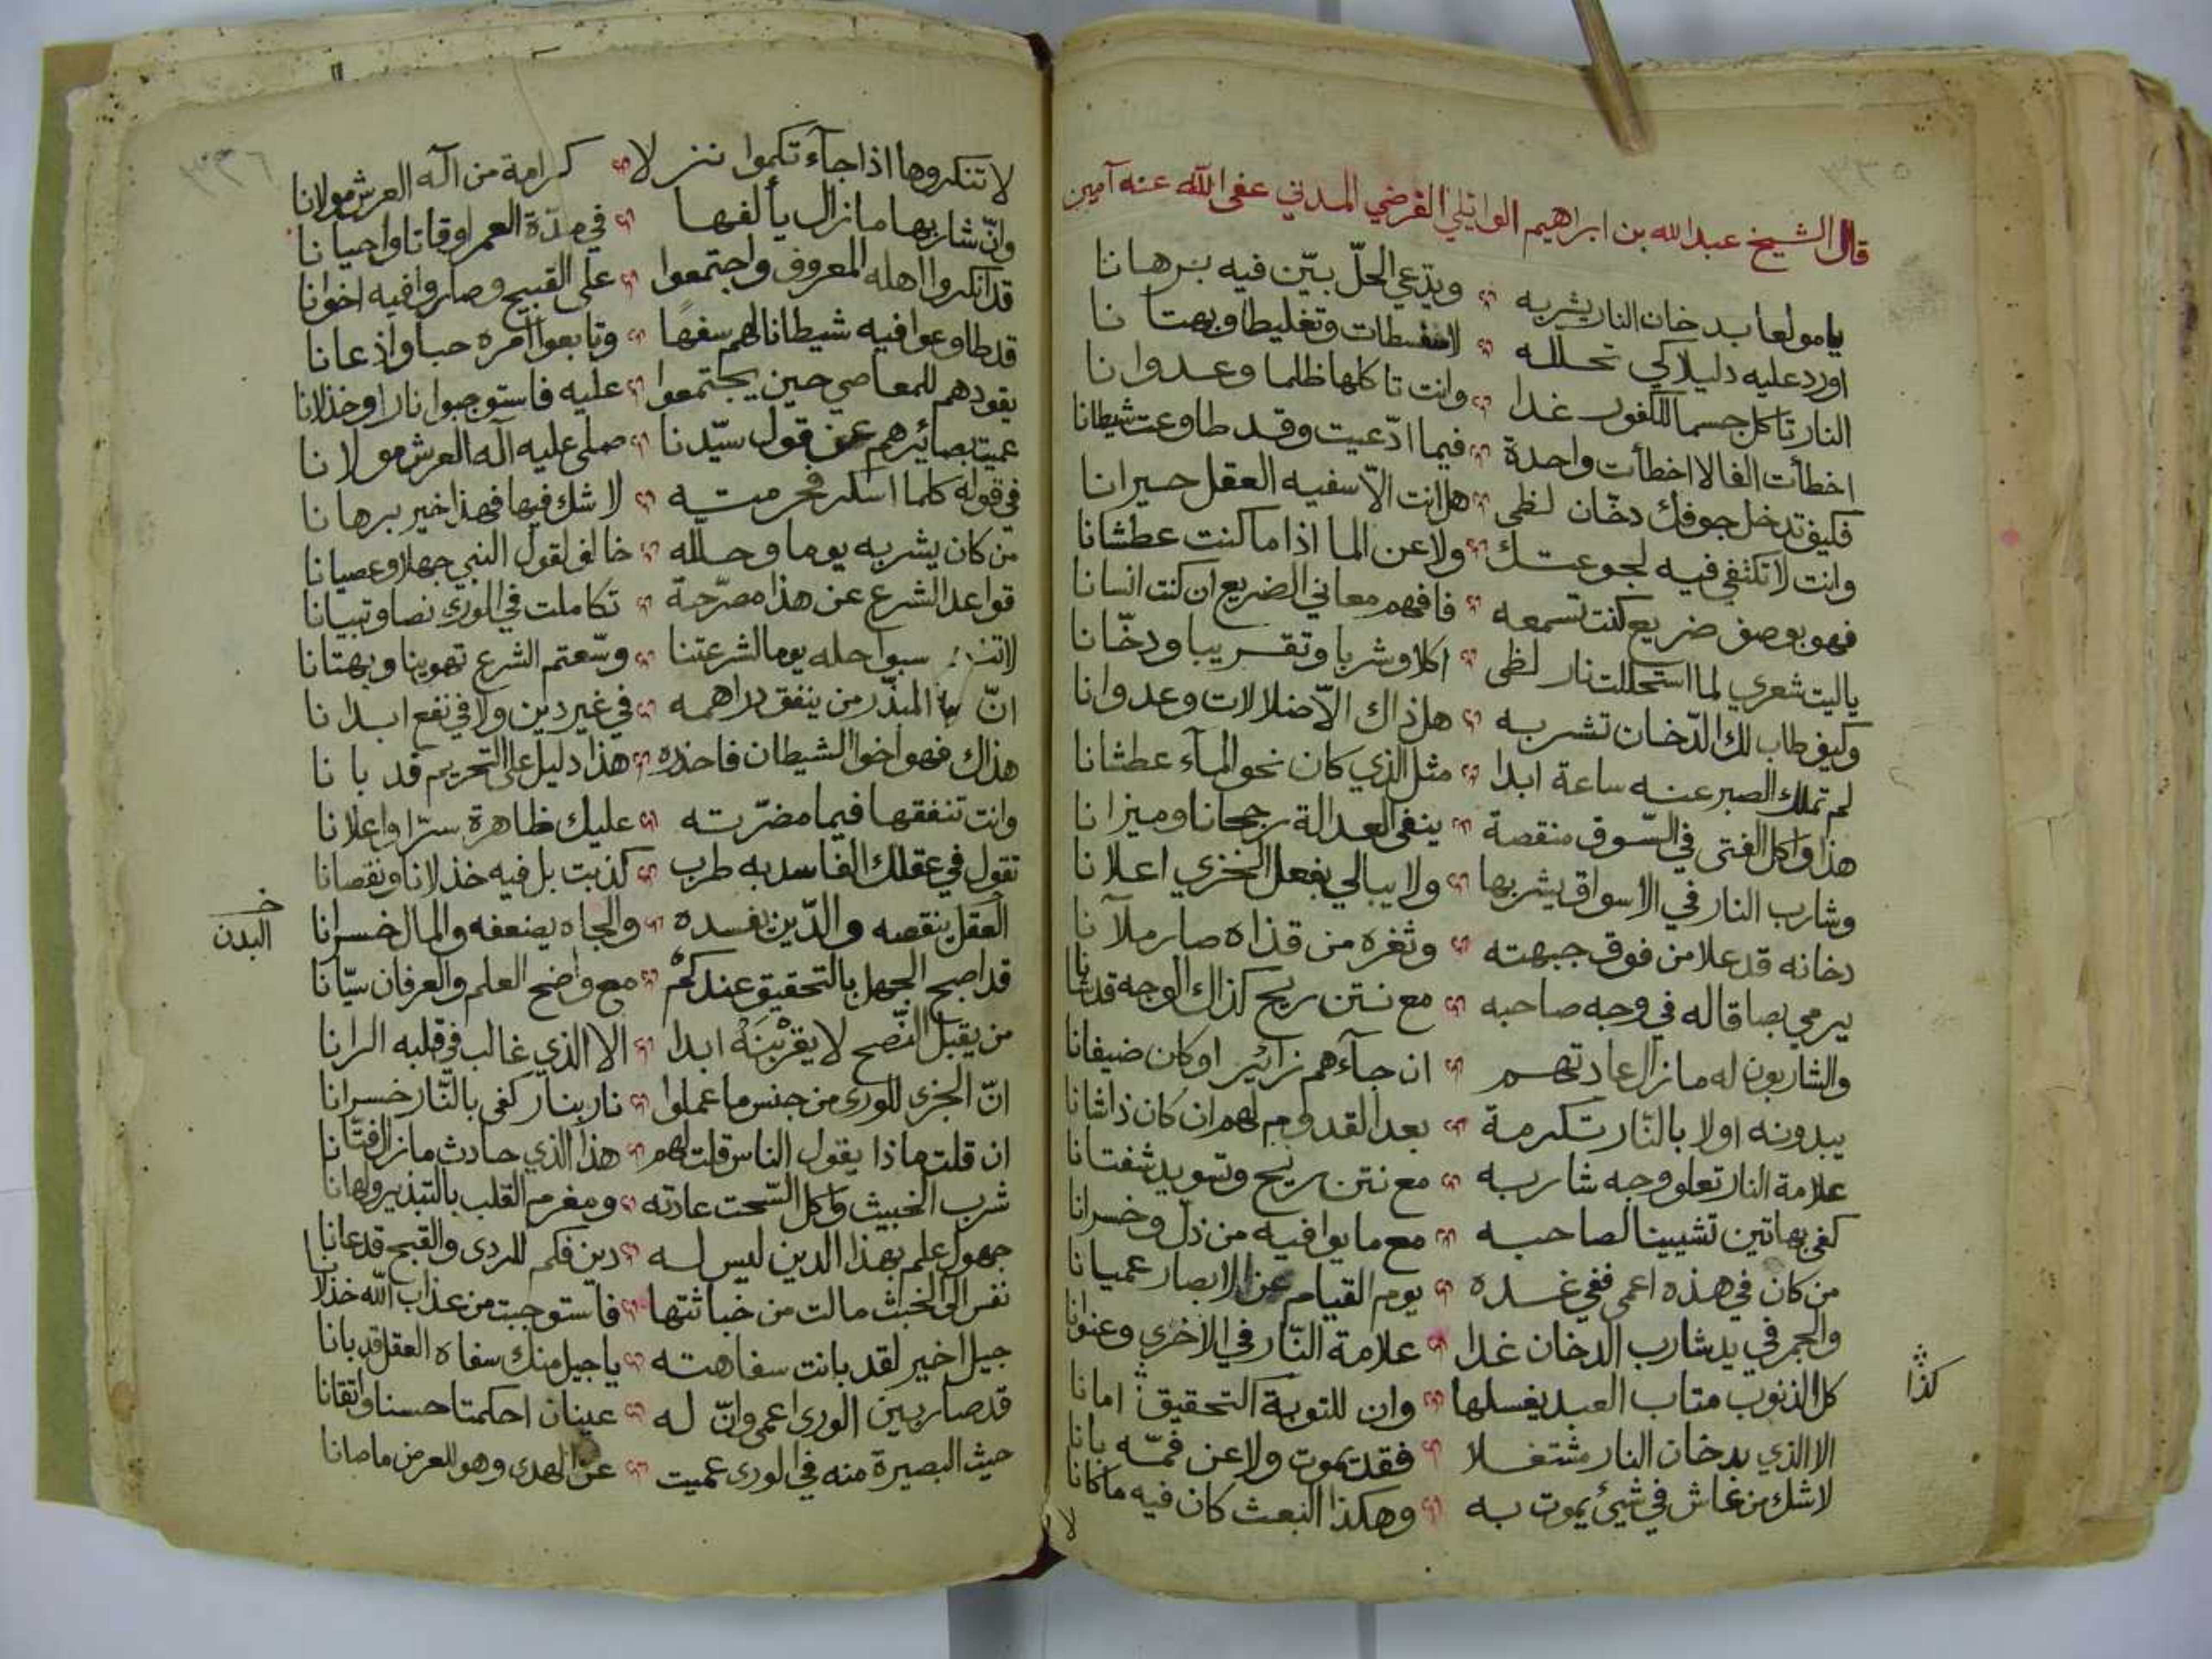 ٣٣٥
قال الشيخ عبد الله بن ابراهيم الوائلي الفرضي المدني عفى الله عنه آمين
يا مولعا بدخان النار يشربه ويدّعي الحلّ بيّن فيه برهانا
اورد عليه دليلا كي تحلله لا سفسطات وتغليطا وبهتانا
النار تاكل جسما للكفور غدا وانت تاكلها ظلما وعدوانا
اخطأت الفا لا اخطأت واحدة فيما ادّعيت وقد طاوعت شيطانا
فكيف تدخل جوفك دخّان لظى هل انت الّا سفيه العقل حيرانا
وانت لا تكتفي فيه لجوعتك ولا عن الما اذا ما كنت عطشانا
فهو بوصف ضريع كنت تسمعه فافهم معاني الضريع ان كنت انسانا
ياليت شعري لما استحللت نار لظى اكلا وشربا وتقريبا ودخّانا
وكيف طاب لك الدّخان تشربه هل ذاك الّا ضلالات وعدوانا
لم تملك الصبر عنه ساعة ابدا مثل الذي كان نحو المآء عطشانا
هذا واكل الفتى في السّوق منقصة ينفى العدالة رجحانا وميزانا
وشارب النار في الاسواق يشربها ولا يبالي بفعل المخزي اعلانا
دخانه قد علا من فوق جبهته وثغره من قذاه صار ملآنا
يرمي بصاقا له في وجه صاحبه مع نتن ريح كذاك الوجه قد شانا
والشاربون له ما زال عادتهم ان جآءهم زائير او كان ضيفانا
يبدونه اولا بالنّار تكرمة بعد القدوم لهم ان كان ذا شانا
علامة النار تعلو وجه شاربه مع نتن ريح وتسويد شفتانا
كفى بهاتين تشيينا لصاحبه مع ما يوافيه من ذلّ وخسرانا
من كان في هذه اعمى ففي غده يوم القيام عن الابصار عميانا
والجمر في يد شارب الدخان غدا علامة النّار في الاخرى وعنوانا
كل الذنوب متاب العبد يغسلها وان للتوبة التحقيق امانا
كذا
الا الذي بدخان النار مشتغلا فقد يموت ولا عن فمّه بانا
لا شك من عاش في شيئ يموت به وهكذا البعث كان فيه ما كانا
لا
٣٣٦
لا تنكروها اذا جآءتكموا نزلا كرامة من اله العرش مولانا
وانّ شاربها ما زال يألفها في مدّة العمر اوقاتا واحيانا
قد انكروا اهله المعروف واجتمعوا على القبيح وصاروا فيه اخوانا
قد طاوعوا فيه شيطانا لهم سفها وتابعوا امره حبا واذعانا
يقودهم للمعاصي حين يجتمعوا عليه فاستوجبوا نارا وخذلانا
عميت بصائرهم عن قول سيّدنا صلى عليه اله العرش مولانا
في قوله كلما اسكر فحرمته لا شك فيها فهذا خير برهانا
من كان يشربه يوما وحلّله خالف لقول النبي جهلا وعصيانا
قواعد الشرع عن هذا مصرّحة تكاملت في الورى نصا وتبيانا
لا تنسبوا حله يوما لشرعتنا وسّعتم الشرع تهوينا وبهتانا
انّ المبذّر من ينفق دراهمه في غير دين ولا في نفع ابدانا
هذاك فهو اخوا الشيطان فاحذره هذا دليل على التحريم قد بانا
وانت تنفقها فيما مضرّته عليك ظاهرة سرّا واعلانا
تقول في عقلك الفاسد به طرب كذبت بل فيه خذلانا ونقصانا
العقل ينقصه والدّين يفسده والجاه يضعفه والمال خسرانا
خـ البدن
قد اصبح الجهل بالتحقيق عندكم مع واضح العلم والعرفان سيّانا
من يقبل النّصح لا يقربنه ابدا الا الذي غالب في قلبه الرانا
انّ الجزى للورى من جنس ما عملوا نار بنار كفى بالنّار خسرانا
ان قلت ماذا يقول الناس قلت لهم هذا الذي حادث ما زال فتّانا
شرب الخبيث واكل السّحت عادته ومغرم القلب بالتبذير ولهانا
جهول علم بهذا الدين ليس له دين فكم للردى والقبح قد عانا
نفس الى الخبث مالت من خباثتها فاستوجبت من عذاب الله خذلانا
جيل اخير لقد بانت سفاهته يا جيل منك سفاه العقل قد بانا
قد صار بين الورى اعمى وانّ له عينان احكمتا حسنا واتقانا
حيث البصيرة منه في الورى عميت عن الهدى وهو للعرض ما صانا